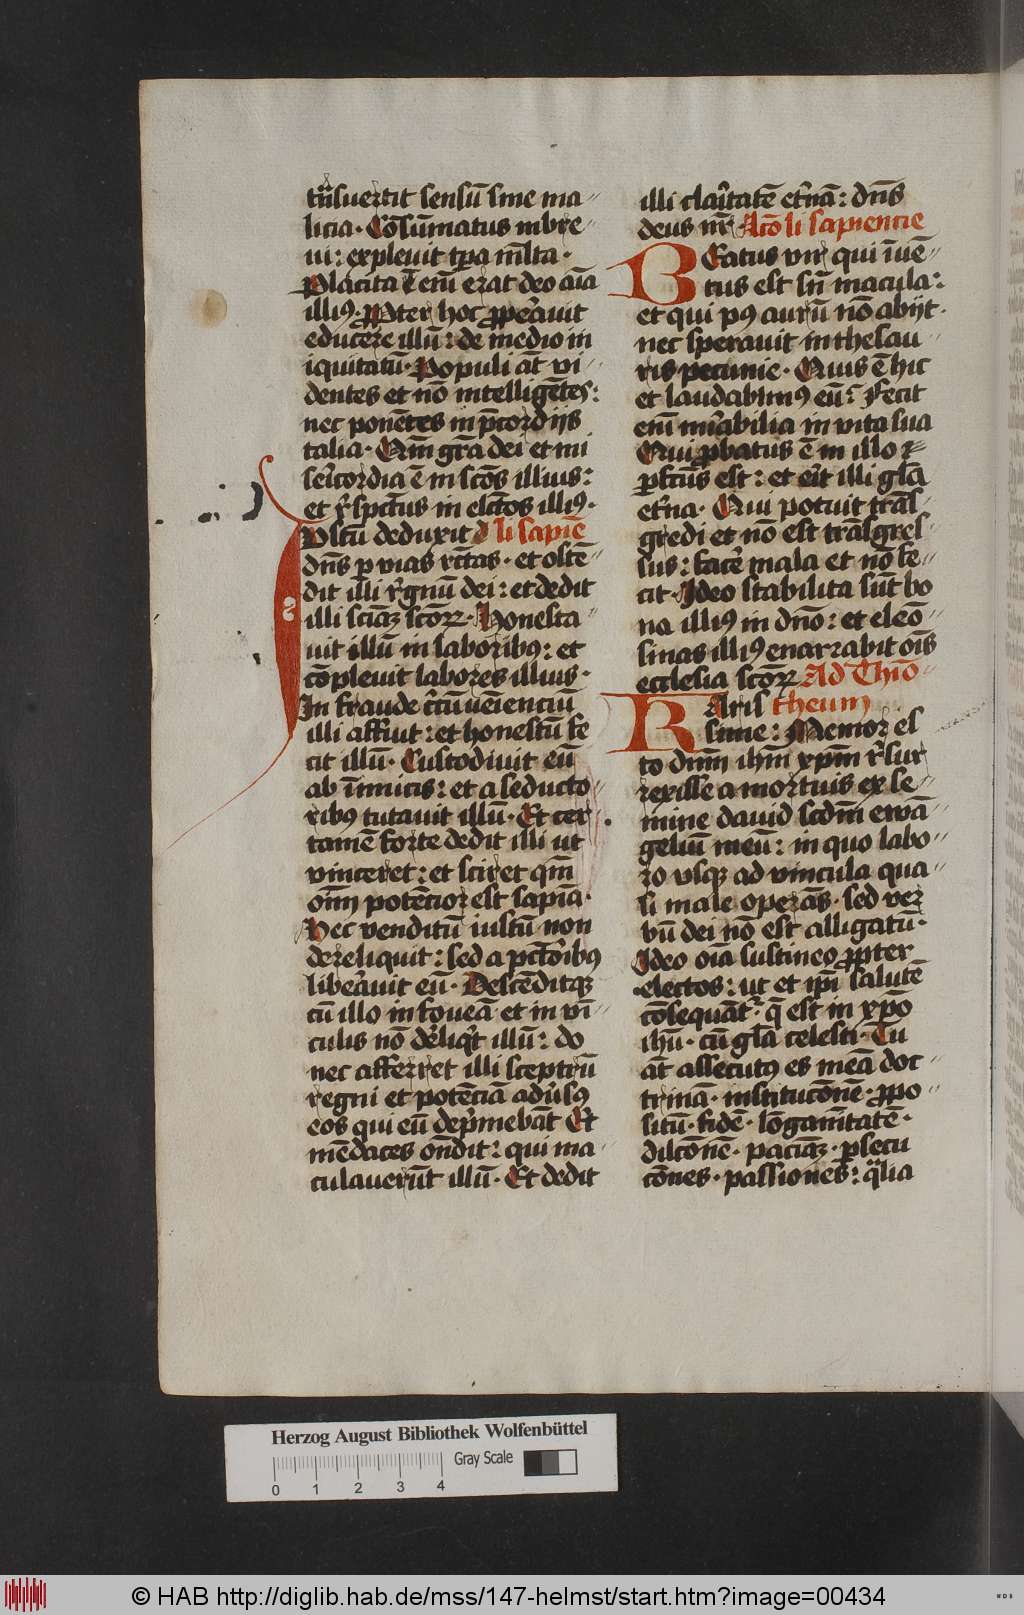 trãsuertit sensũ sine ma
licia · Cõsũmatus in bre
ui: expleuit tpa m̃lta ·
Placita ẽ eñ erat deo aĩa
illiꝰ · ꝓpter hoc ꝓpeᷓauit
educere illũ: de medio in
iquitatũ · Populi aũt vi
dentes et nõ intelligẽtes:
nec ponẽtes in p̃cordijs
talia · Qm̃ gr̃a dei et mi
sericordia ẽ in scõs illius:
et r̃spctus in elctos illiꝰ ·
Iustũ deduxit d̃ li sapiẽ
dñs p vias rctas · et ostẽ
dit illi r̃gnũ dei: et dedit
illi sciãꝫ scõꝝ · Honesta
uit illũ in laboribꝰ: et
cõpleuit labores illius ·
In fraude c̃cũueniẽciũ
illi affuit: et honestũ fe
cit illũ · Custodiuit eũ
ab inimicis: et a seducto
ribꝰ tutauit illũ · Et cer
tamẽ forte dedit illi ut
vinceret: et sciret qm̃
oim̃ potẽcior est sapĩa ·
Hec venditũ iustũ non
dereliquit: sed a pctõribꝰ
liberauit eũ · Descẽditqꝫ
cũ illo in foueã et in vĩ
culis nõ dr̃liqᷓt illũ: do
nec afferret illi sceptrũ
regni et potẽciã adũsꝰ
eos qui eũ dep̃mebãt Et
mẽdaces on̄dit: qui ma
culauerũt illũ · Et dedit
illi claritatẽ et̃nã: dñs
deus nr̃ Alcõ li sapiencie
BEatus vir qui inuẽ
tus est sñ macula:
et qui pꝰ aurũ nõ abijt ·
nec sperauit in thesau
ris pecunie · Quis ẽ hic
et laudabimꝰ eũ: Fecit
eñ mirabilia in vita sua
Qui ꝓbatus ẽ in illo ⁊
pfctus est: et eit illi glã
et̃na · Qui potuit trãs
gredi et nõ est trãsgres
sus: face mala et nõ fe
cit · Ideo stabilita sũt bo
na illiꝰ in dño: et eleõ
sinas illiꝰ enarrabit oĩs
ecclesia scõꝝ Ad Thio
KAris theum
sime: Memor es
to dñm ihm̃ xp̃m r̃sur
rexisse a mortuis ex se
mine dauid scdm̃ ewã
geliũ meũ: in quo labo
ro vsqꝫ ad vincula qua
si male operãs · sed ver
bũ dei nõ est alligatũ ·
Ideo oĩa sustineo ꝓpter
electos: ut et ipĩ salutẽ
cõsequãtᷣ · q̃ est in xpõ
ihũ · cũ glã celesti · Tu
aũt assecutꝰ es meã doc
trinã · institucõnẽ · ꝓpo
sitũ · fidẽ · lõganĩtatẽ ·
dilcõnẽ · paciãꝫ · psecu
cõnes · passiones: qᷓlia
Herzog August Bibliothek Wolfenbüttel
Gray Scale
0 1 2 3 4
© HAB http://diglib.hab.de/mss/147-helmst/start.htm?image=00434